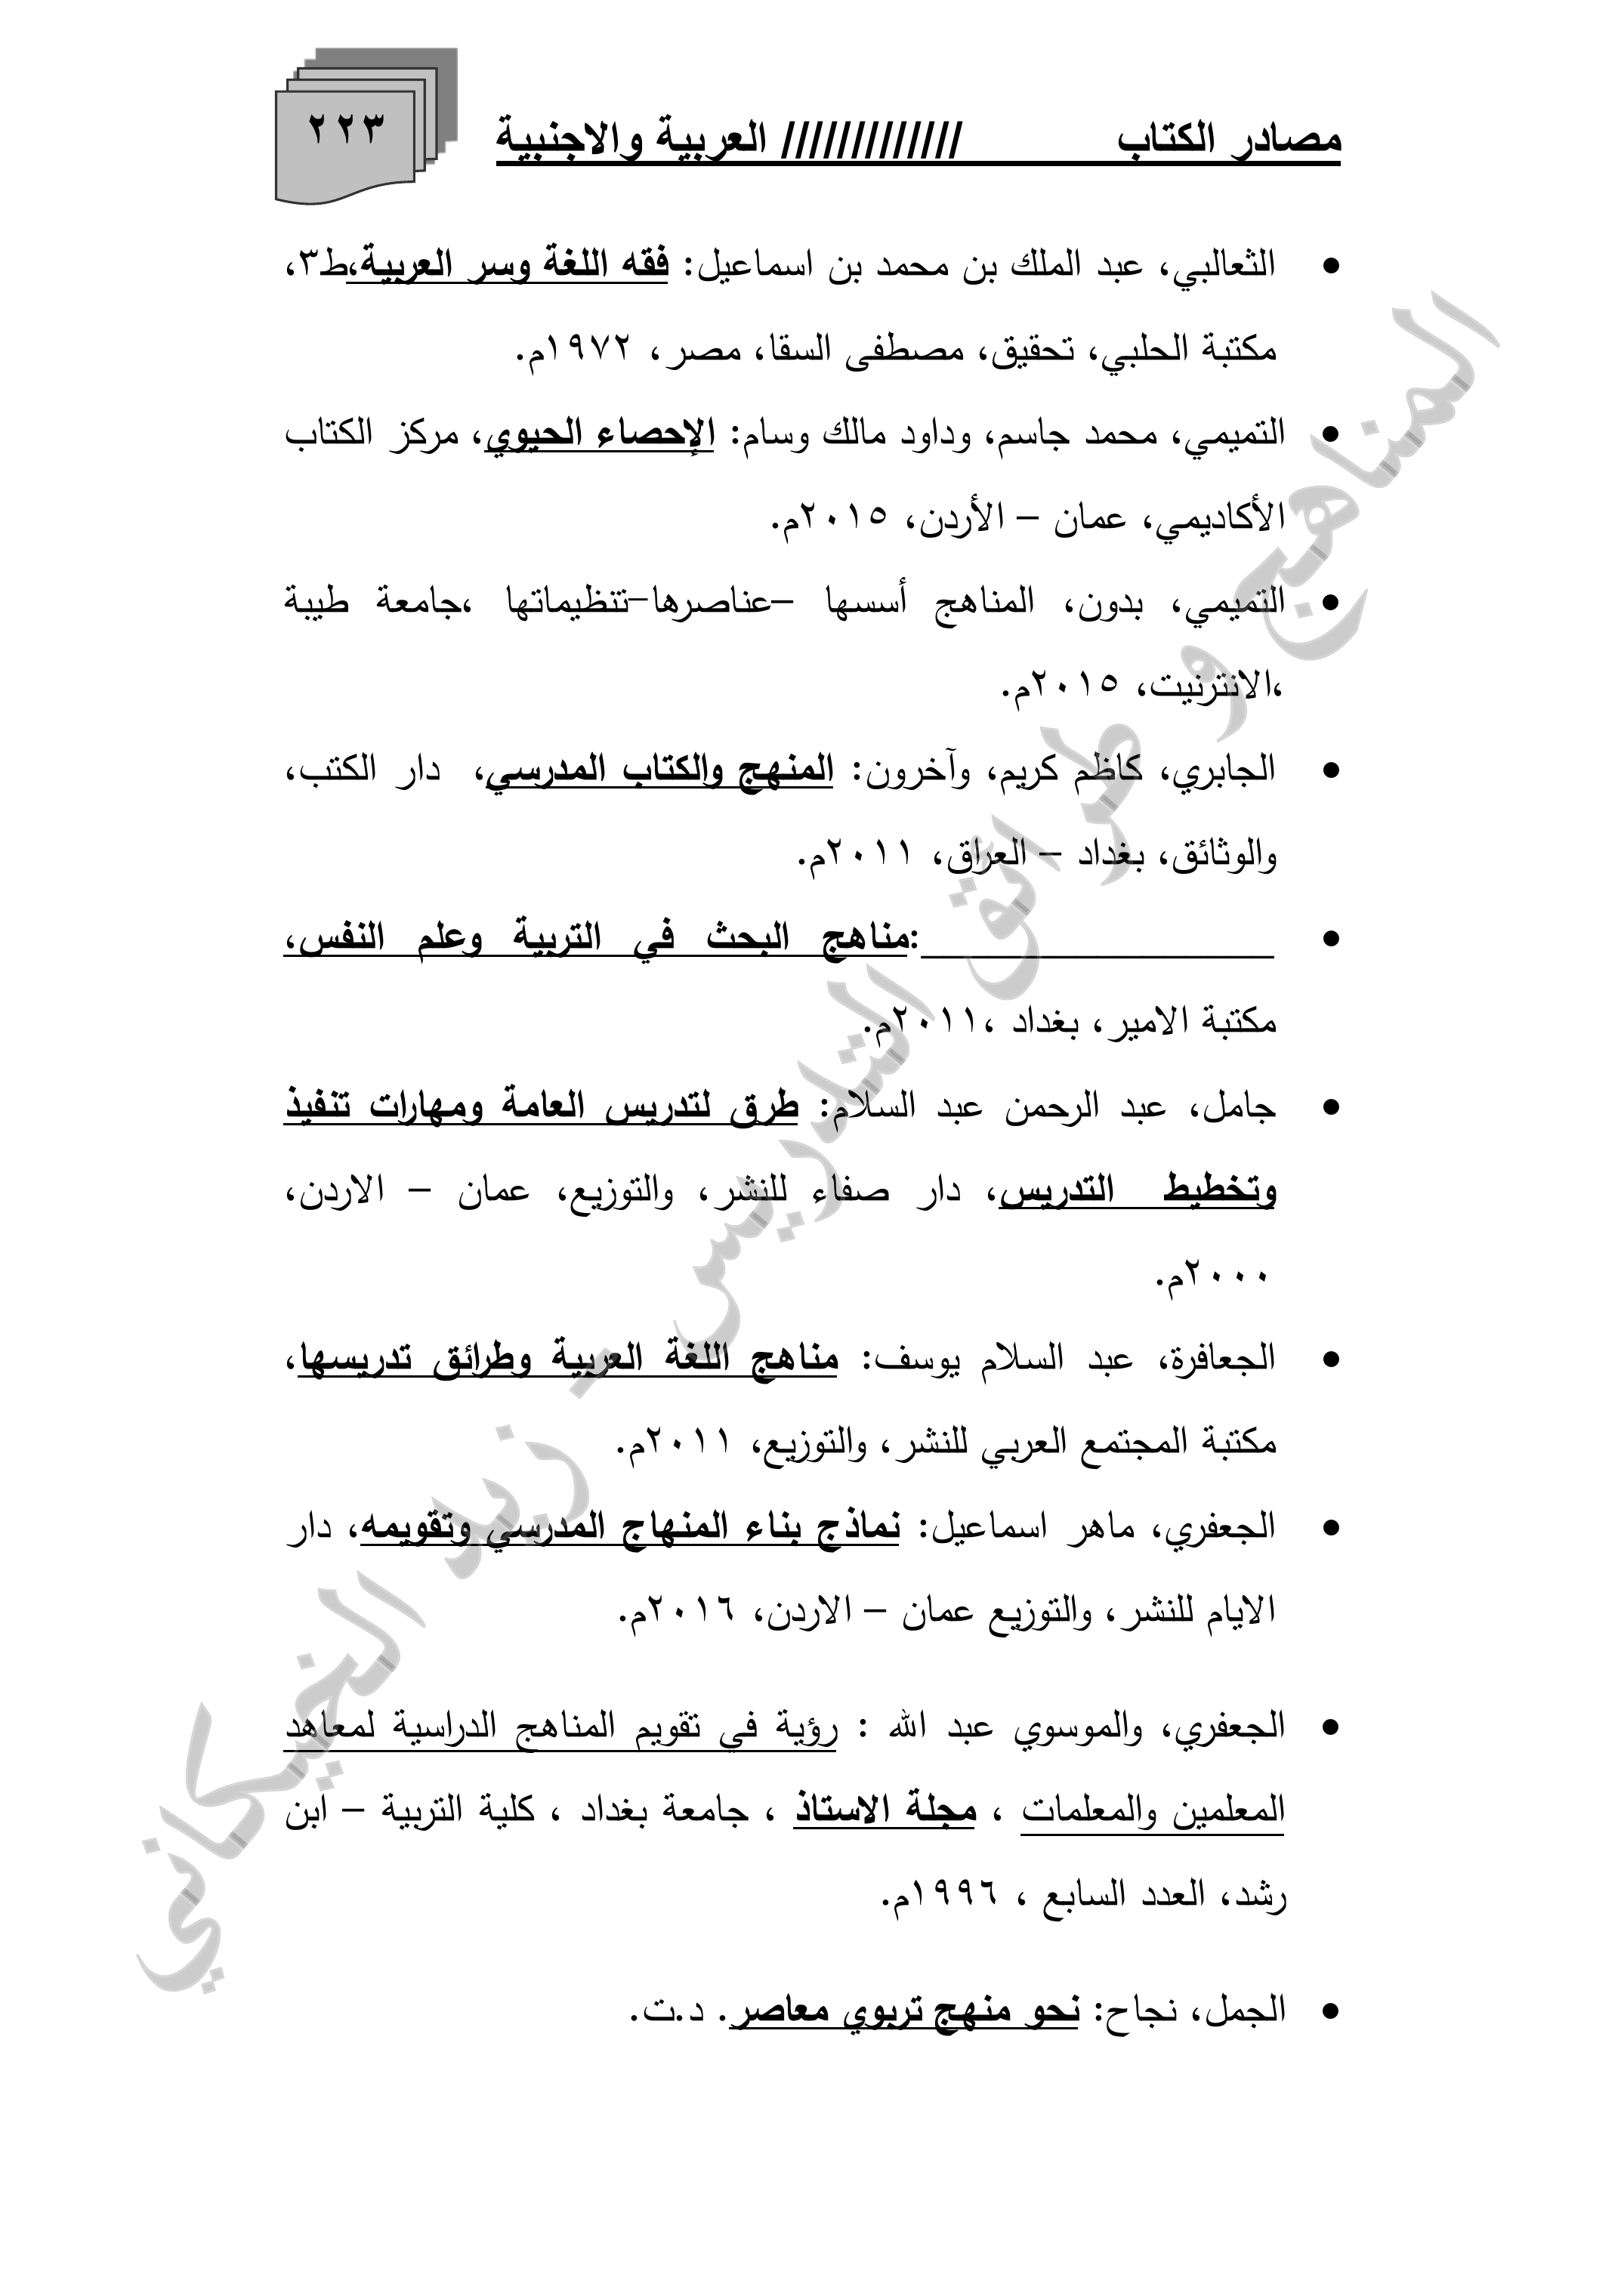 مصادر الكتاب ///////////// العربية والاجنبية
٢٢٣
• الثعالبي، عبد الملك بن محمد بن اسماعيل: فقه اللغة وسر العربية،ط٣،
مكتبة الحلبي، تحقيق، مصطفى السقا، مصر، ١٩٧٢م.
• التميمي، محمد جاسم، وداود مالك وسام: الإحصاء الحيوي، مركز الكتاب
الأكاديمي، عمان – الأردن، ٢٠١٥م.
• التميمي، بدون، المناهج أسسها –عناصرها–تنظيماتها ،جامعة طيبة
،الانترنيت، ٢٠١٥م.
• الجابري، كاظم كريم، وآخرون: المنهج والكتاب المدرسي، دار الكتب،
والوثائق، بغداد – العراق، ٢٠١١م.
• ________________:مناهج البحث في التربية وعلم النفس،
مكتبة الامير، بغداد ،٢٠١١م.
• جامل، عبد الرحمن عبد السلام: طرق لتدريس العامة ومهارات تنفيذ
وتخطيط التدريس، دار صفاء للنشر، والتوزيع، عمان – الاردن،
٢٠٠٠م.
• الجعافرة، عبد السلام يوسف: مناهج اللغة العربية وطرائق تدريسها،
مكتبة المجتمع العربي للنشر، والتوزيع، ٢٠١١م.
• الجعفري، ماهر اسماعيل: نماذج بناء المنهاج المدرسي وتقويمه، دار
الايام للنشر، والتوزيع عمان – الاردن، ٢٠١٦م.
• الجعفري، والموسوي عبد الله : رؤية في تقويم المناهج الدراسية لمعاهد
المعلمين والمعلمات ، مجلة الاستاذ ، جامعة بغداد ، كلية التربية – ابن
رشد، العدد السابع ، ١٩٩٦م.
• الجمل، نجاح: نحو منهج تربوي معاصر. د.ت.
المناهج و طرائق التدريس - زيد الخيكاني